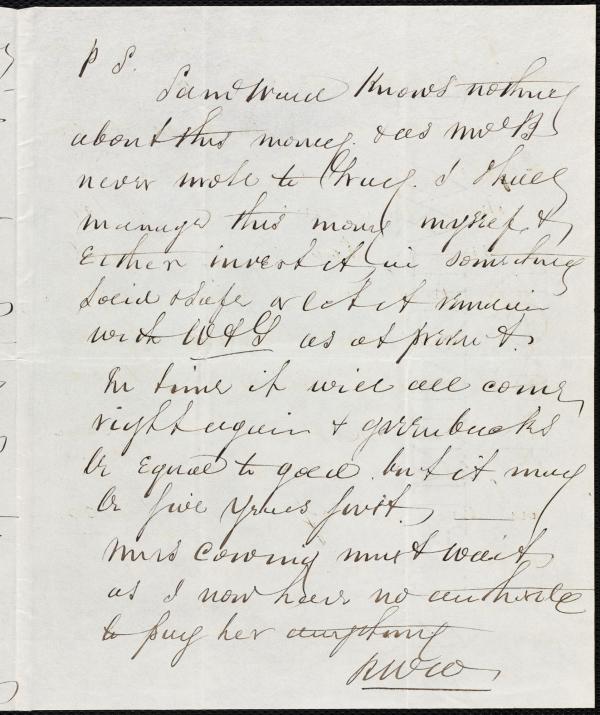 P S.
Sam Ward knows nothing
about this money. & as Mr B
never wrote to Chucy. I shall
manage this money myself, &
Either invest it in something
Solid & safe or let it remain
with W & G as at present.
In time it will all come
right again & greenbacks
be equal to gold. but it may
be five years first.
Mrs Cowing must wait
as I now have no authority
to pay her anything
RWW